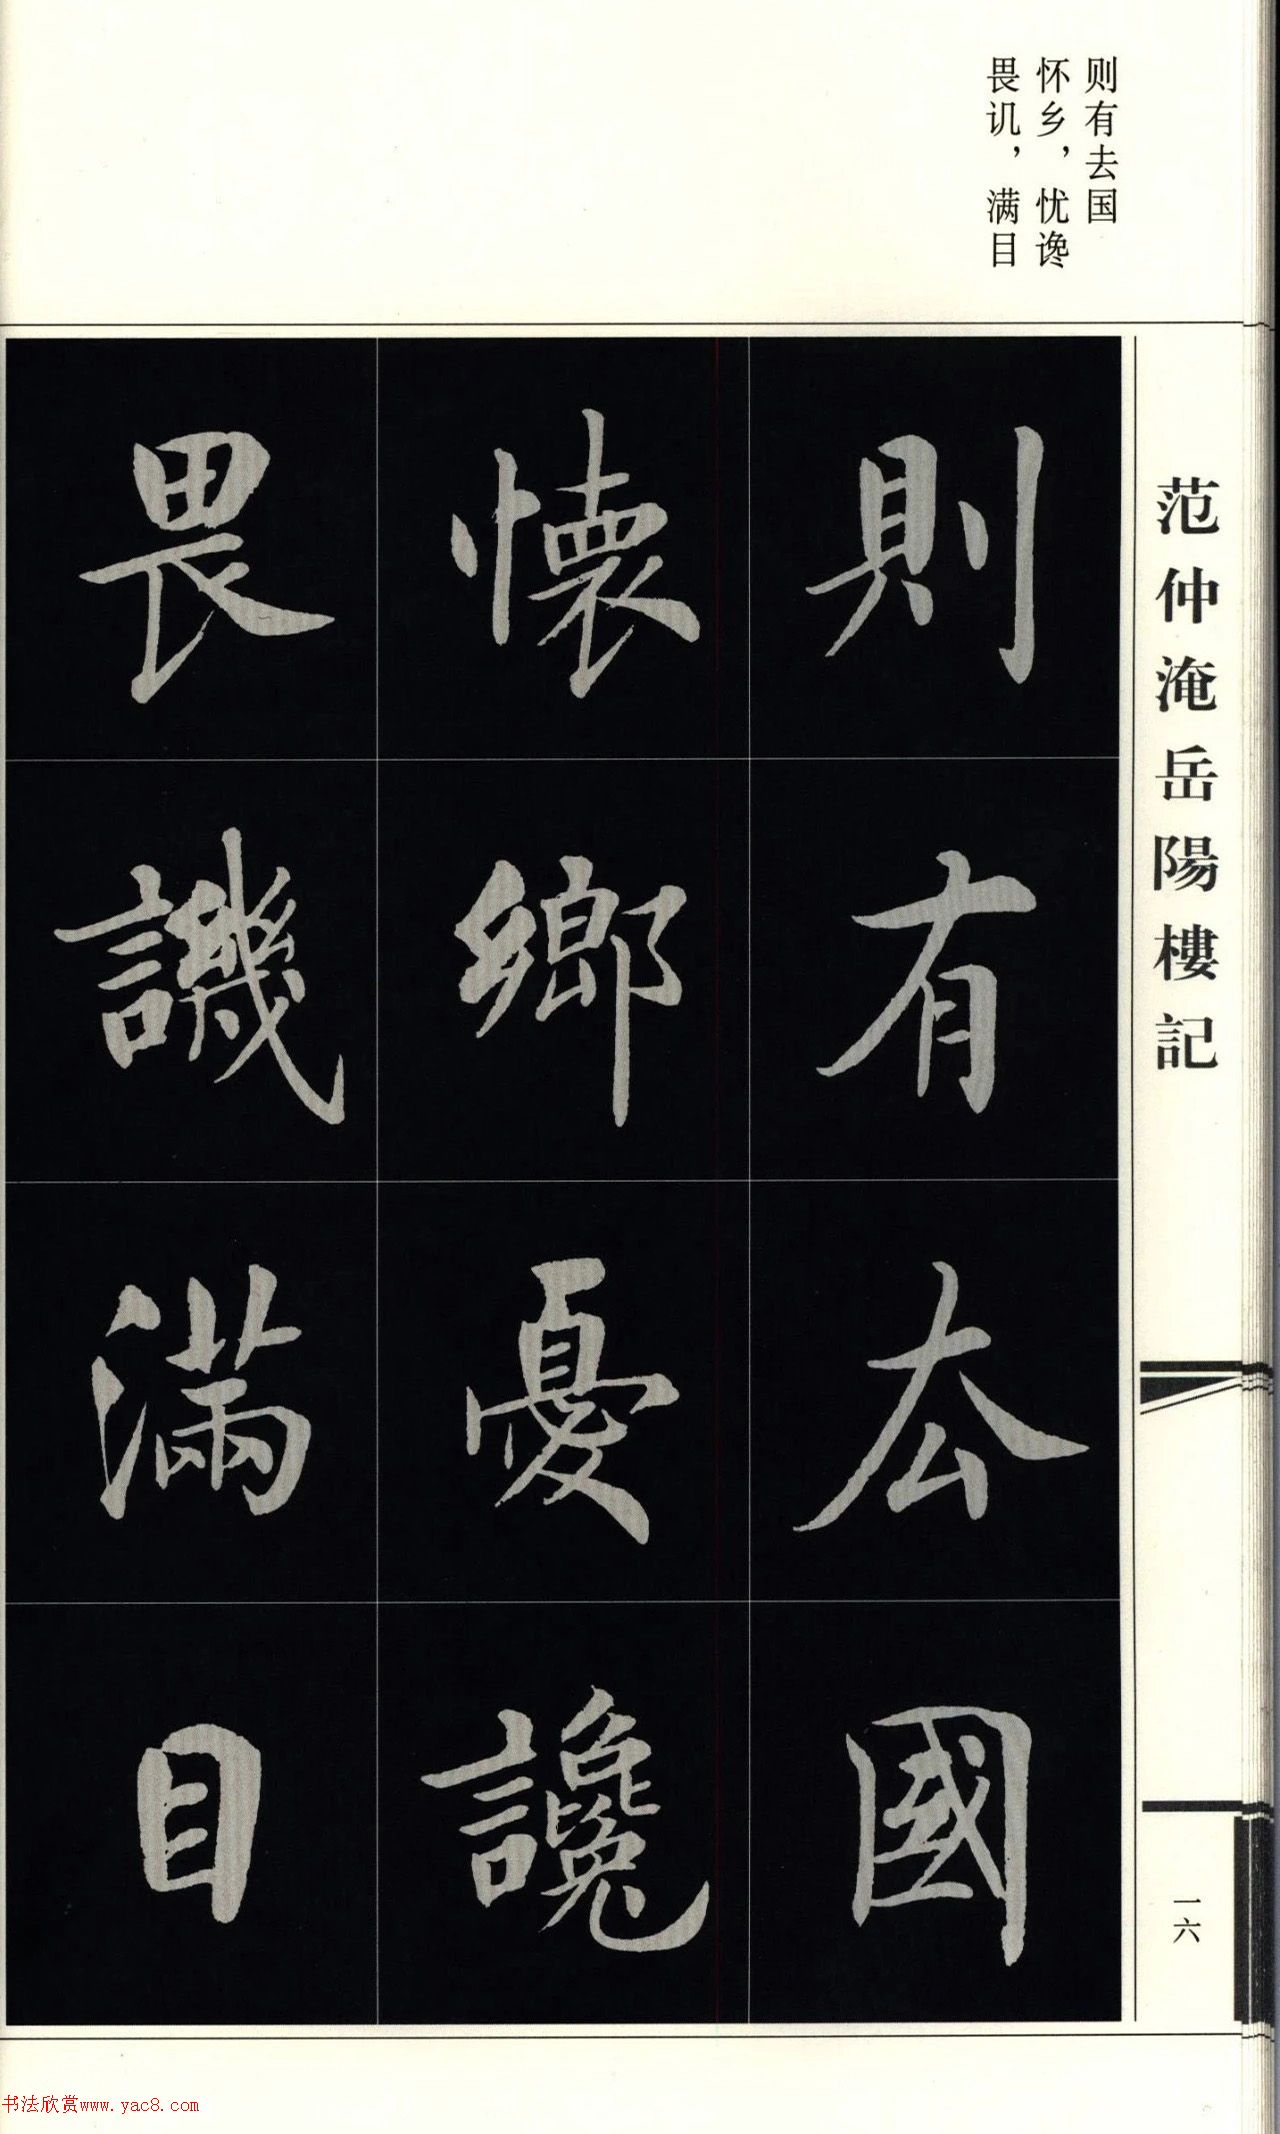 则有去国
怀乡，忧谗
畏讥，满目
范仲淹岳陽樓記
一六
則有厺國
懐鄉憂讒
畏譏滿目
书法欣赏www.yac8.com